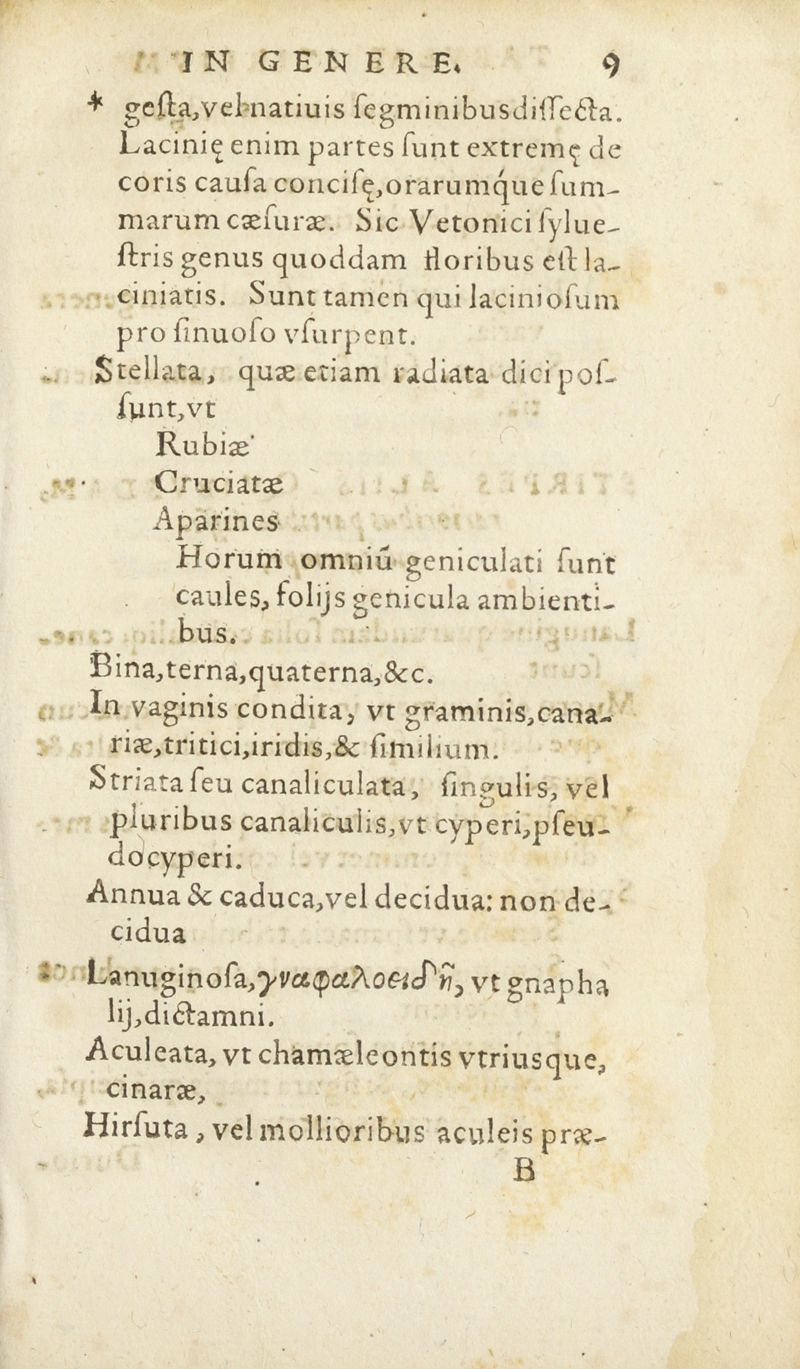 IN GENERE. 9
* geſta,vel natiuis ſegminibusdiſſecta.
Lacinię enim partes ſunt extremę de
coris cauſa conciſę,orarumque ſum-
marum cæſuræ. Sic Vetonici ſylue-
ſtris genus quoddam floribus eſt la-
ciniatis. Sunt tamen qui lacinioſum
pro ſinuoſo vſurpent.
Stellata, quæ etiam radiata dici poſ-
ſunt,vt
Rubiæ
Cruciatæ
Aparines
Horum omniū geniculati ſunt
caules, folijs genicula ambienti-
bus.
Bina,terna,quaterna,&c.
In vaginis condita, vt graminis,cana-
riæ,tritici,iridis,& ſimilium.
Striata ſeu canaliculata, ſingulis, vel
pluribus canaliculis,vt cyperi,pſeu-
docyperi.
Annua & caduca,vel decidua: non de-
cidua
Lanuginoſa,γναφαλοειδῆ, vt gnapha
lij,dictamni.
Aculeata, vt chamæleontis vtriusque,
cinaræ,
Hirſuta, vel mollioribus aculeis præ-
B